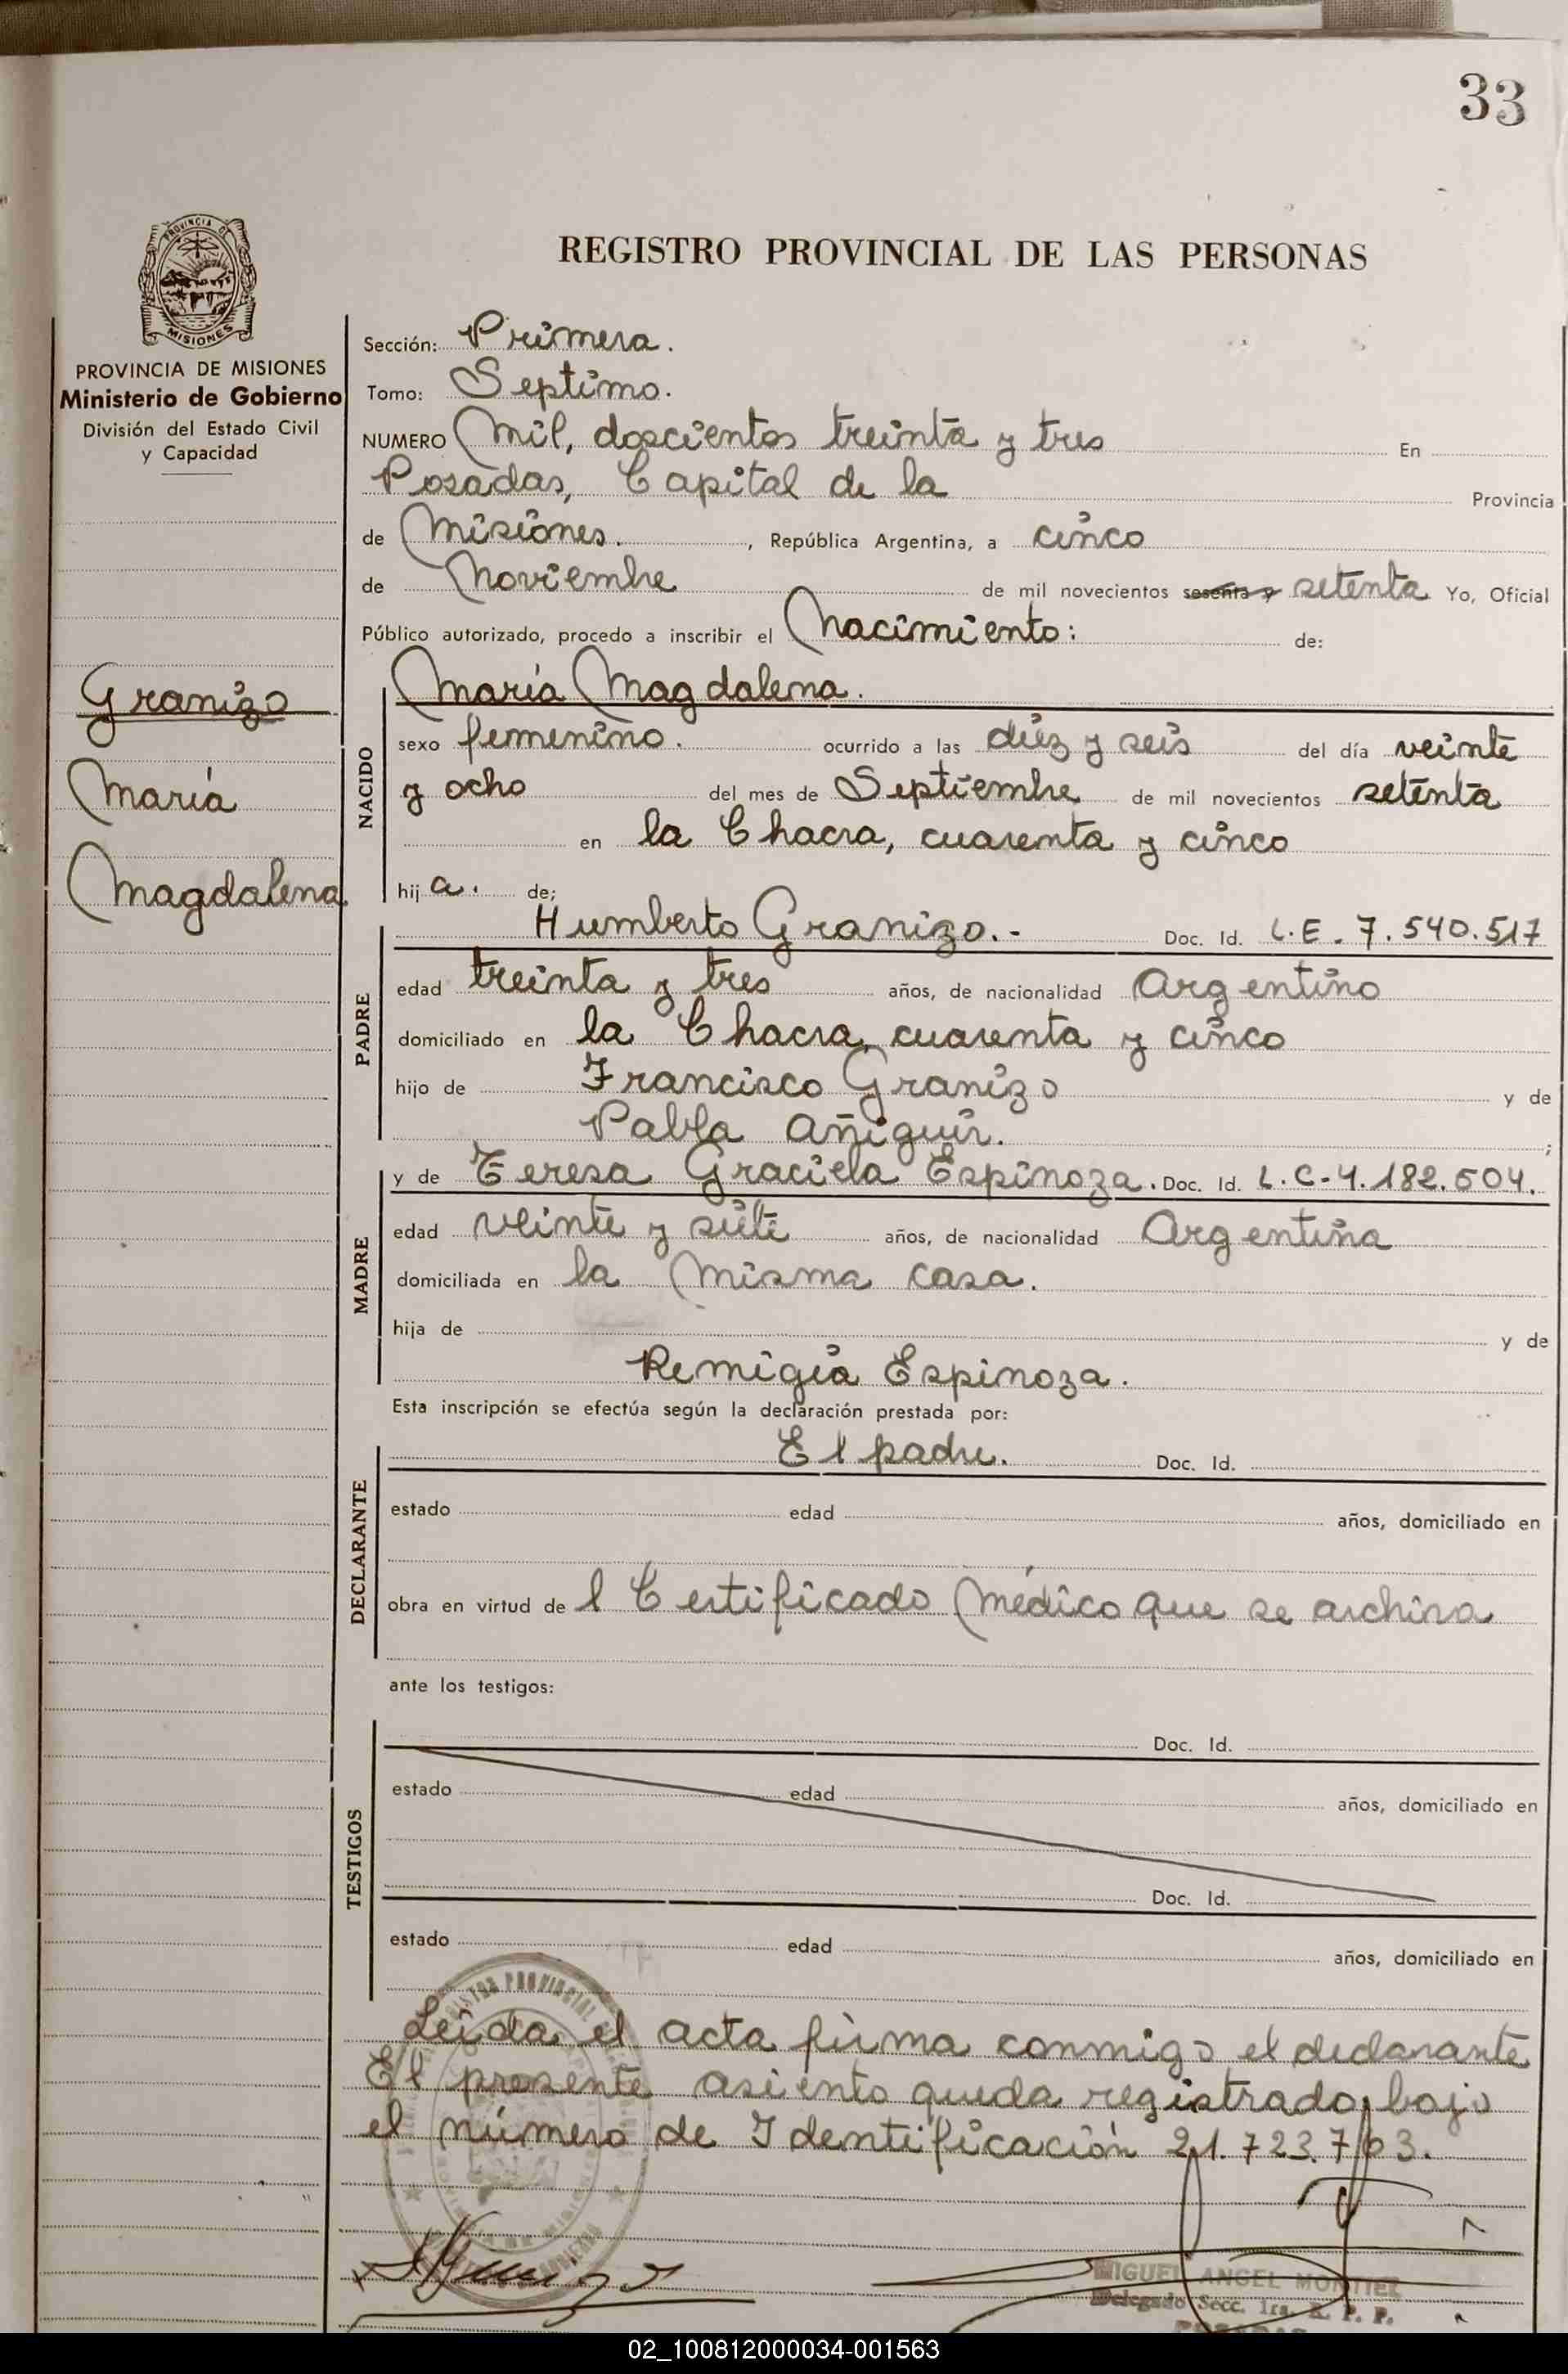 33
REGISTRO PROVINCIAL DE LAS PERSONAS
PROVINCIA DE
MISIONES
PROVINCIA DE MISIONES
Ministerio de Gobierno
División del Estado Civil
y Capacidad
Granizo
María
Magdalena
Sección: Primera.
Tomo: Septimo.
NUMERO Mil, doscientos treinta y tres En
Posadas, Capital de la Provincia
de Misiones. , República Argentina, a cinco
de Noviembre de mil novecientos sesenta y setenta Yo, Oficial
Público autorizado, procedo a inscribir el Nacimiento: de:
María Magdalena.
NACIDO
sexo femenino. ocurrido a las diez y seis del día veinte
y ocho del mes de Septiembre de mil novecientos setenta
en la Chacra, cuarenta y cinco
hij a. de;
Humberto Granizo.- Doc. Id. L.E. 7.540.517
PADRE
edad treinta y tres años, de nacionalidad Argentino
domiciliado en la Chacra, cuarenta y cinco
hijo de Francisco Granizo y de
Pabla Añiguir. ;
y de Teresa Graciela Espinoza. Doc. Id. L.C-4.182.504.
MADRE
edad veinte y siete años, de nacionalidad Argentina
domiciliada en la misma casa.
hija de y de
Remigia Espinoza.
Esta inscripción se efectúa según la declaración prestada por:
El padre. Doc. Id.
DECLARANTE
estado edad años, domiciliado en
obra en virtud de l Certificado Médico que se archiva
ante los testigos:
Doc. Id.
TESTIGOS
estado edad años, domiciliado en
Doc. Id.
estado edad años, domiciliado en
Leida el acta firma conmigo el declarante
El presente asiento queda registrado bajo
el número de Identificación 21.723.763.
MIGUEL ANGEL MONTIEL
Delegado Secc. 1ra. R. P. P.
02_100812000034-001563